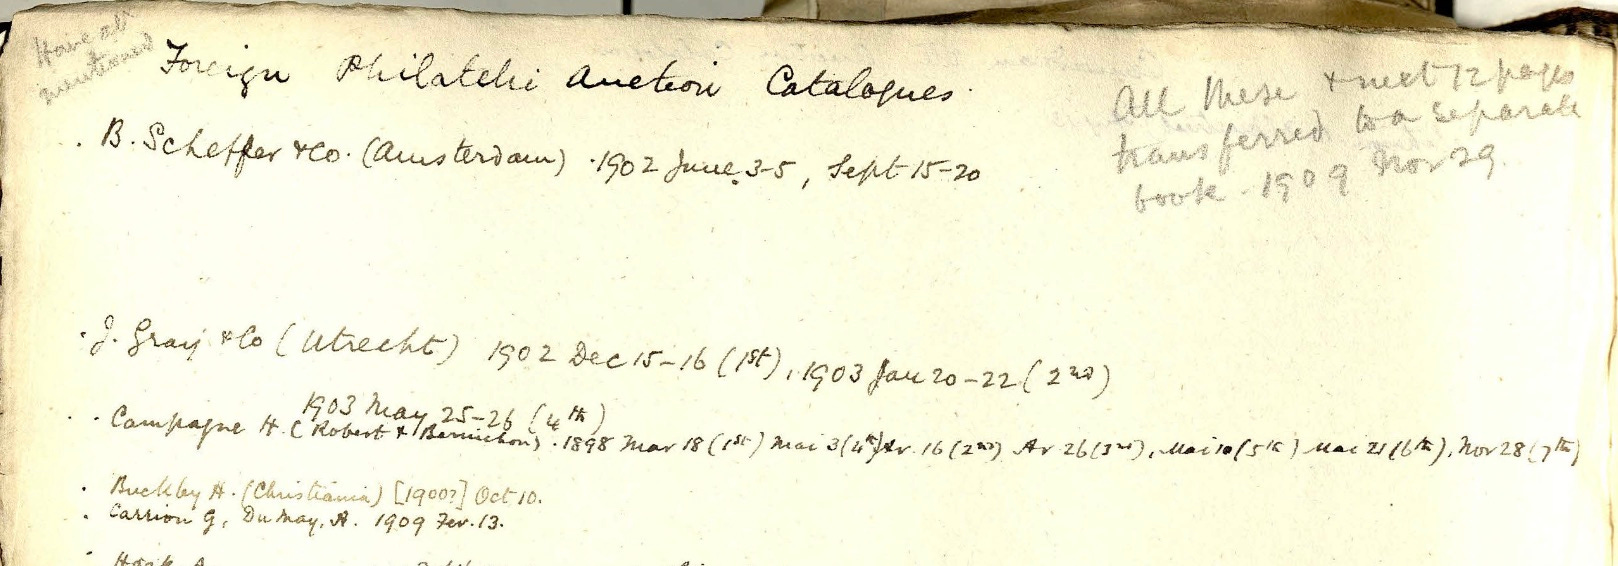 Have all
mentioned
Foreign Philatelic Auction Catalogues.
All these & next 12 pages
transferred to a separate
book - 1909 Nov 29.
. B. Scheffer & Co. (Amsterdam) . 1902 June 3-5, Sept 15-20
. J. Gray & Co (Utrecht) 1902 Dec 15-16 (1st), 1903 Jan 20-22 (2nd)
1903 May 25-26 (4th)
. Campagne H. (Robert & ) . 1898 Mar 18 (1st) Mai 3 (4th) Av. 16 (2nd) Av 26 (3rd), Mai 10 (5th) Mai 21 (6th), Nov 28 (7th)
. Buckley H. (Christiania) [1900?] Oct 10.
. Carrion G, Du May, A. 1909 Fev. 13.